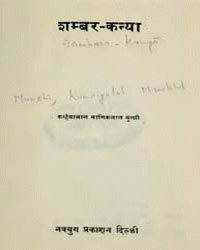 शम्बर-कन्या
Sambara - Kanyā
Munshi, Kanaiyalal Maneklal
कन्हैयालाल माणिकलाल मुन्शी
नवयुग प्रकाशन दिल्ली